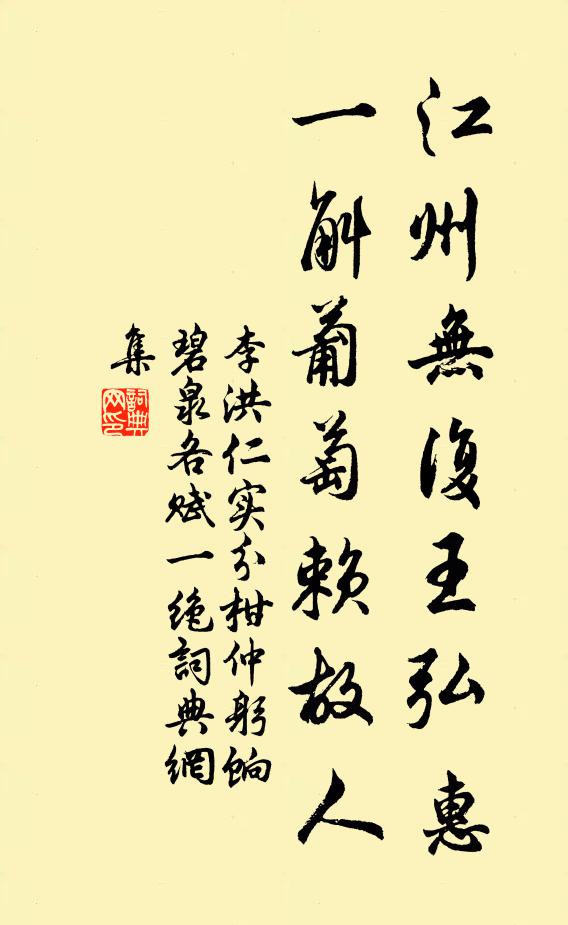 江州無復王弘惠
一斛葡萄賴故人
李洪仁实分柑仲躬餉
碧泉各赋一绝詞典網
集
詞典
网印